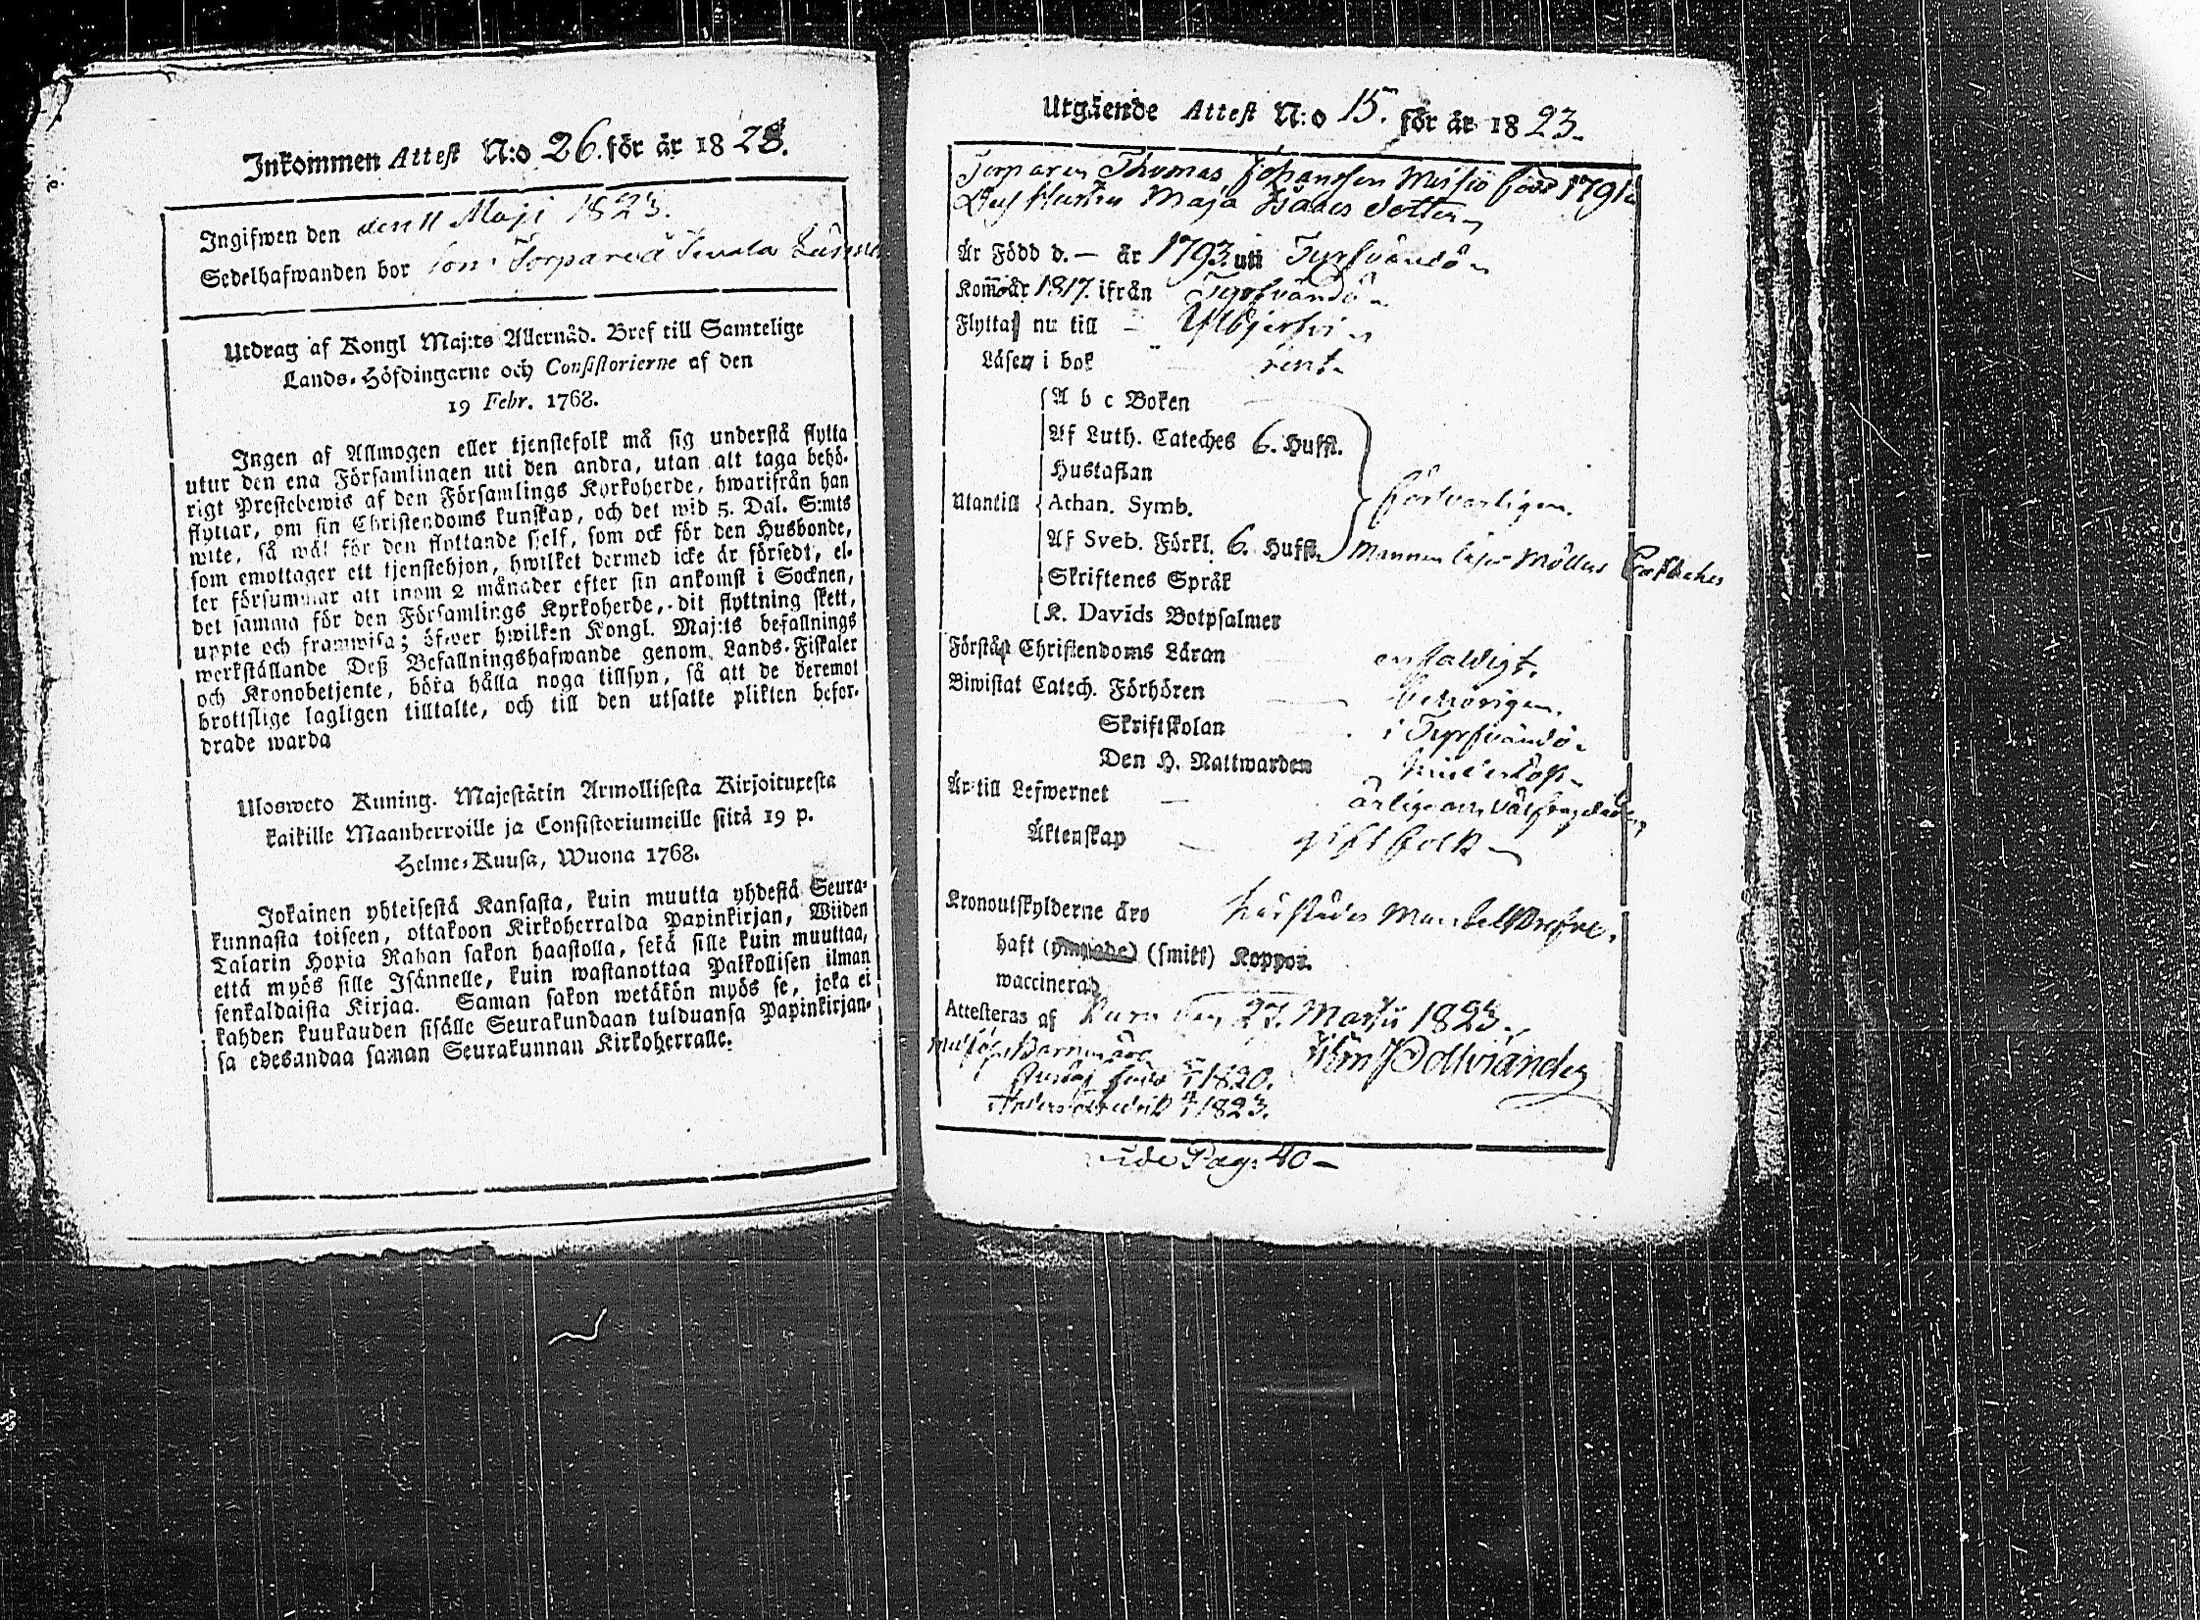 Inkommen Attest N:o 26. för år 1823.
Ingifwen den den 11 Maji 1823.
Sedelhafwanden bor som Torpare å
Utdrag af Kongl Maj:ts Allernåd. Bref till Samtelige
Lands-Höfdingarne och Consistorierne af den
19 Febr. 1768.
Ingen af Allmogen eller tjenstefolk må sig understå flytta
utur den ena Församlingen uti den andra, utan att taga behö-
rigt Prestebewis af den Församlings Kyrkoherde, hwarifrån han
flyttar, om sin Christendoms kunskap, och det wid 5. Dal. S:mts
wite, så wäl för den flyttande sjelf, som ock för den Husbonde,
som emottager ett tjenstehjon, hwilket dermed icke är försedt, el-
ler försummar att inom 2 månader efter sin ankomst i Socknen,
det samma för den Församlings Kyrkoherde, dit flyttning skett,
uppte och framwisa; öfwer hwilken Kongl. Maj:ts befallnings
werkställande Deß Befallningshafwande genom Lands-Fiskaler
och Kronobetjente, böra hålla noga tillsyn, så att de deremot
brottslige lagligen tilltalte, och till den utsatte plikten befor-
drade warda
Ulosweto Kuning. Majestätin Armollisesta Kirjoituxesta
kaikille Maanherroille ja Consistoriumeille siitä 19 p.
Helme-Kuusa, Wuona 1768.
Jokainen yhteisestä Kansasta, kuin muutta yhdestä Seura-
kunnasta toiseen, ottakoon Kirkoherralda Papinkirjan, Wiiden
Talarin Hopia Rahan sakon haastolla, sekä sille kuin muuttaa,
että myös sille Isännelle, kuin wastanottaa Palkollisen ilman
senkaldaista Kirjaa. Saman sakon wetäkön myös se, joka ei
kahden kuukauden sisälle Seurakundaan tulduansa Papinkirjan-
sa edesandaa saman Seurakunnan Kirkoherralle.
Utgående Attest N:o 15. för år 1823.
Torparen Thomas Johansson född 1791
Dess Hustru Maja Isaacs dotter
Är Född d. — år 1793. uti Tyrfvändö
Kom år 1817. ifrån Tyrfvändö
Flyttas nu till Ylöjerfvi
Läsen i bok rent
A b c Boken
Af Luth. Cateches 6. Hufst.
Hustaflan
Utantill Athan. Symb. försvarligen.
Af Sveb. Förkl. 6. Hufst. Mannen läser Möllers Catheches
Skriftenes Språk
K. Davids Botpsalmer
Förstår Christendoms Läran enfaldigt.
Biwistat Catech. Förhören behörigen.
Skriftskolan i Tyrfvändö
Den H. Nattwarden
Är till Lefwernet ärlige och
Äktenskap gift folk
Kronoutskylderne äro
haft (ympade) (smitt) Koppor.
waccinerad
Attesteras af den 27. Martii 1823.
Barn äro
Gustaf född 1820.
Anders Fredrik 1823.
vide Pag: 40